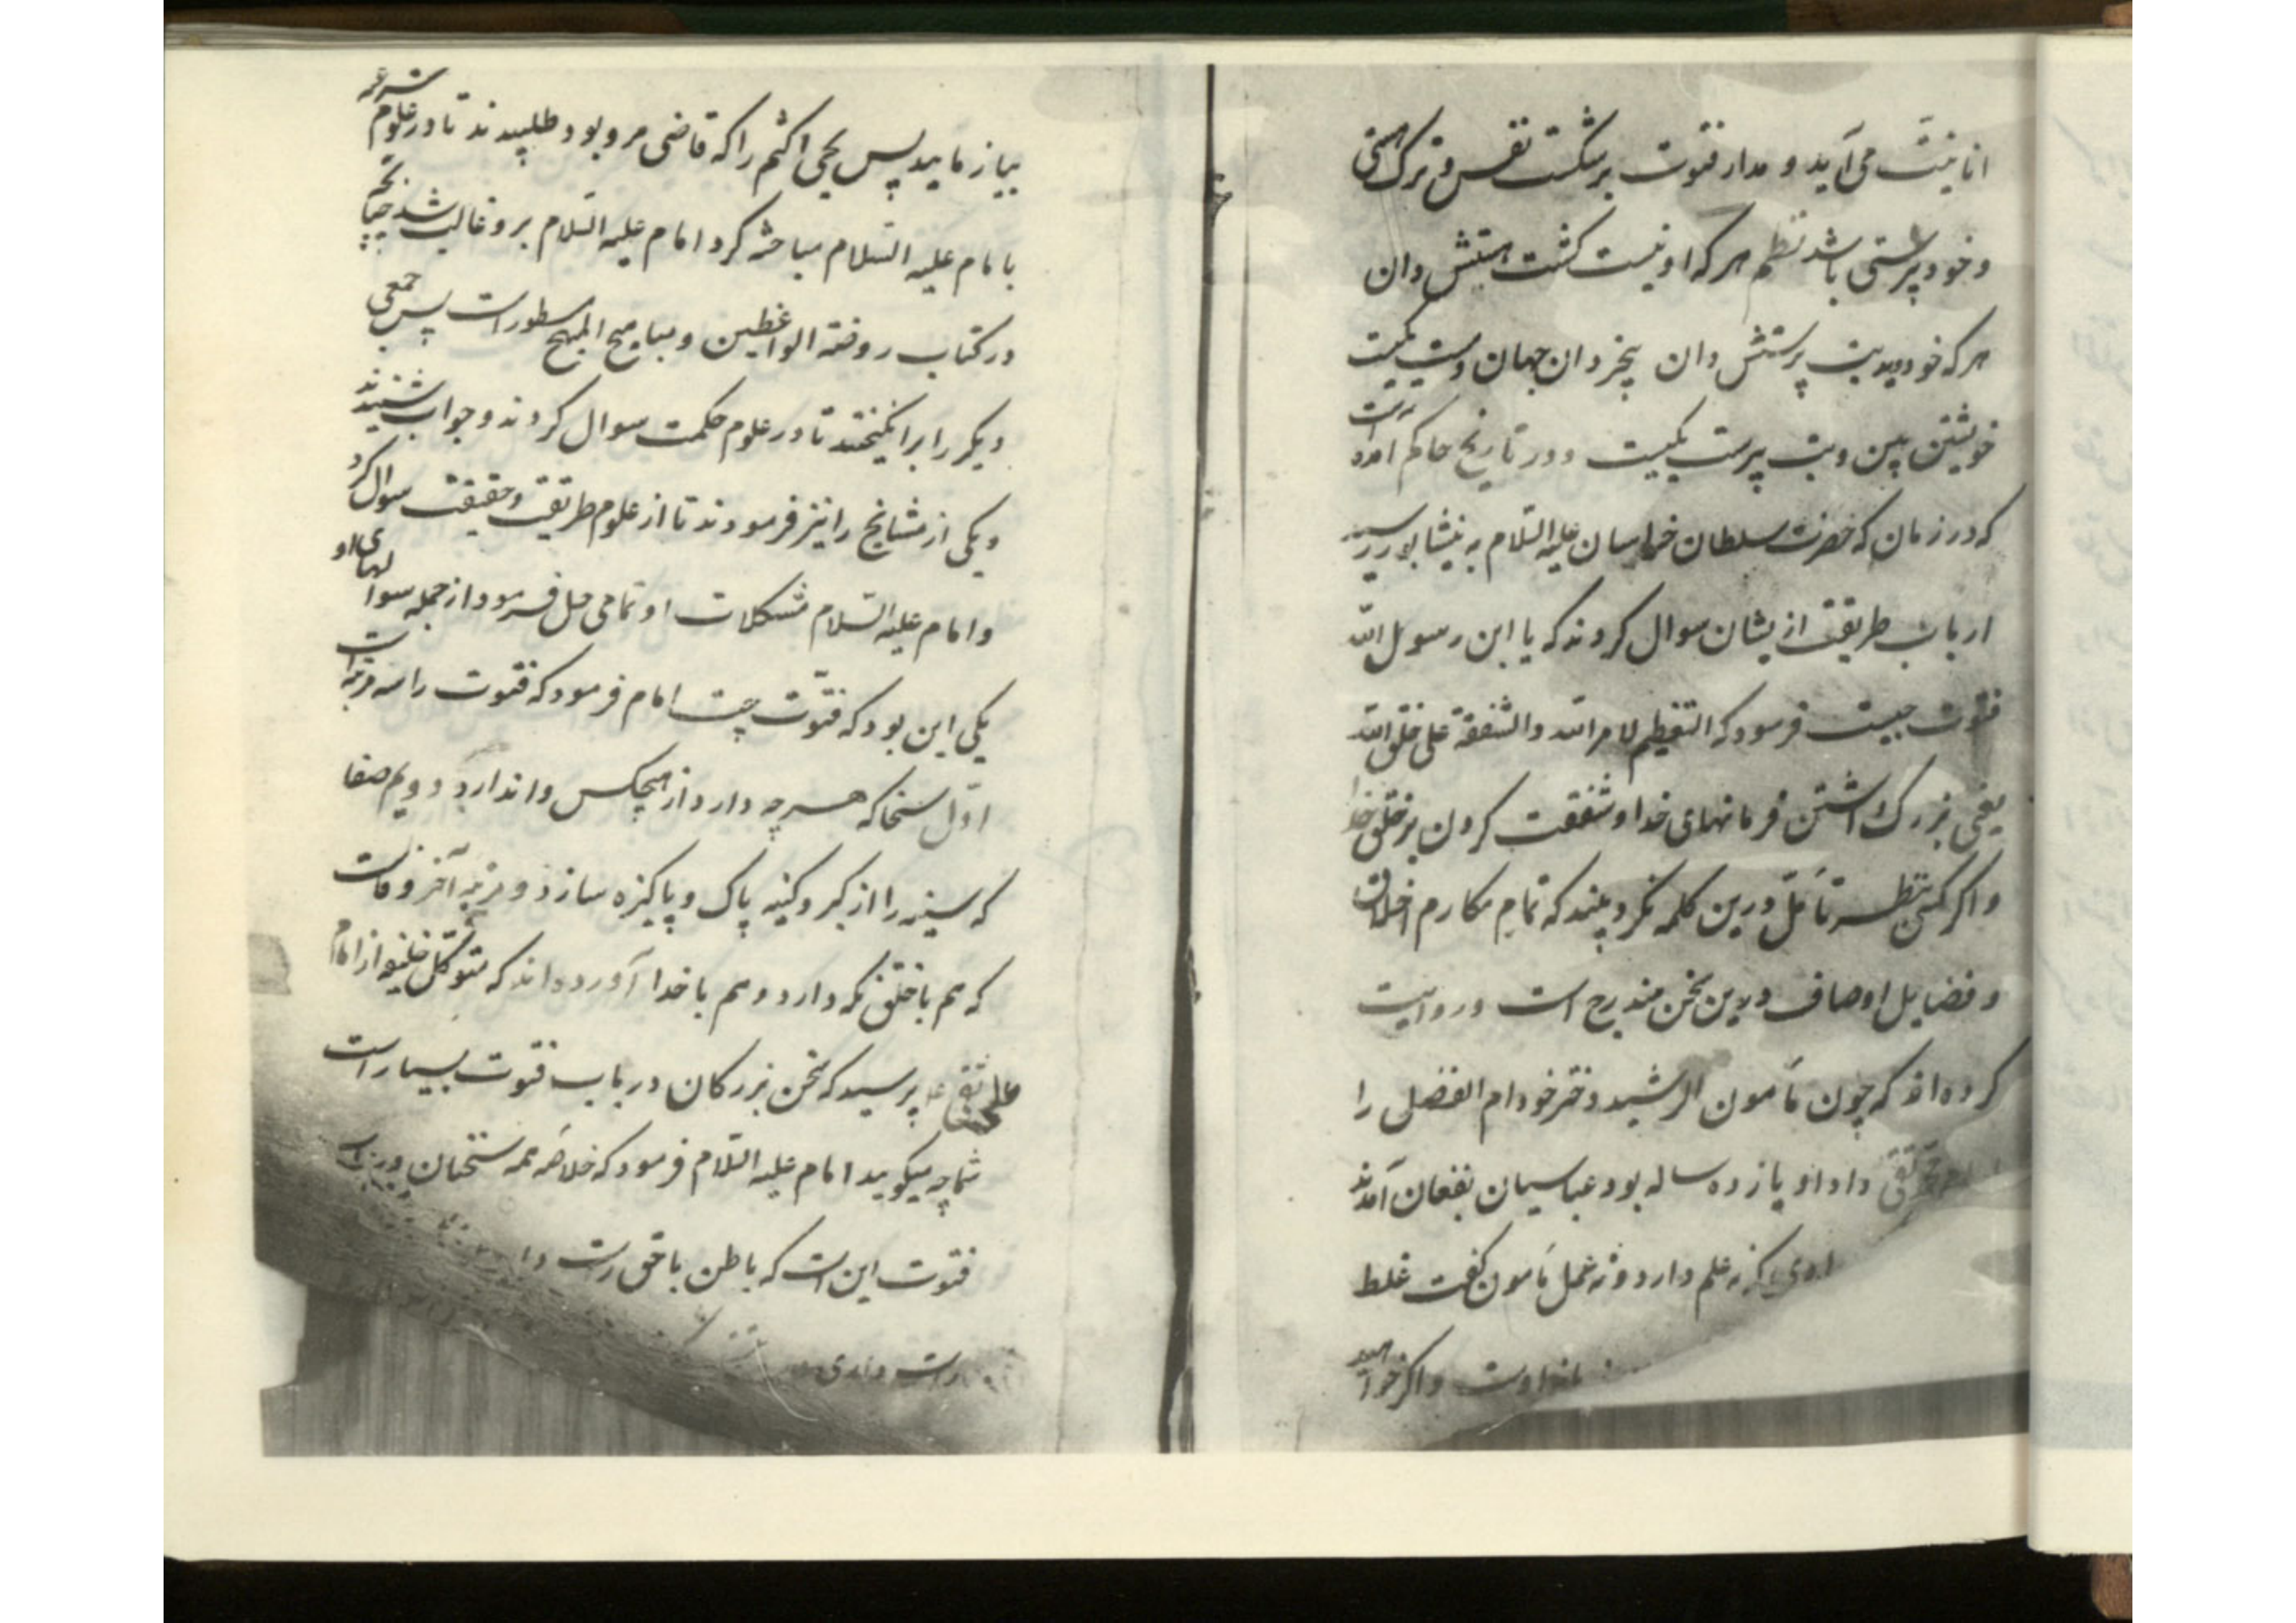 انانیت می آید و مدار فتوت بر شکست نفس و ترک هستی
و خود پرستی باشد نظم هر که او نیست کشت هستش دان
هر که خود دید بت پرستش دان بیخردان جهان
خویشتن بین و بت پرست یکیست و در تاریخ حاکم آمده است
که در زمان که حضرت سلطان خراسان علیه السلام به نیشابور رسید
ارباب طریقت ازیشان سوال کردند که یا ابن رسول الله
فتوت چیست فرمود که التعظیم لامر الله والشفقة علی خلق الله
یعنی بزرک داشتن فرمانهای خدا و شفقت کردن بر خلق خدا
و اکر کسی بنظر تأمل درین کلمه نکرد بیند که تمام مکارم اخلاق
و فضایل اوصاف درین سخن مندرج است و روایت
کرده اند که چون مأمون الرشید دختر خود ام الفضل را
محمد تقی داد او یازده ساله بود عباسیان بفغان آمدند
نه علم دارد و نه عمل مأمون کفت غلط
و اکر خواهید
بیازمایید پس یحیی اکثم را که قاضی مرو بود طلبیدند تا در علوم شرعیه
با امام علیه السلام مباحثه کرد امام علیه السلام برو غالب شد چنانچه
در کتاب روضة الواعظین و مباهج المهج مسطور است پس جمعی
دیکر را برانکیختند تا در علوم حکمت سوال کردند و جواب شنیدند
و یکی از مشایخ را نیز فرمودند تا از علوم طریقت و حقیقت سوال کرد
و امام علیه السلام مشکلات او تمامی حل فرمود از جمله سوالهای او
یکی این بود که فتوت چیست امام فرمود که فتوت را سه مرتبه است
اول سخا که هر چه دارد از هیچکس وا ندارد دویم صفا
که سینه را از کبر و کینه پاک و پاکیزه سازد و مرتبه آخر وفاست
که هم با خلق نکه دارد و هم با خدا آورده اند که متوکل خلیفه از امام
علی نقی پرسید که سخن بزرکان در باب فتوت بسیار است
شما چه میکویید امام علیه السلام فرمود که خلاصه همه سخنان درین باب
فتوت این است که باطن با حق راست
راست داری